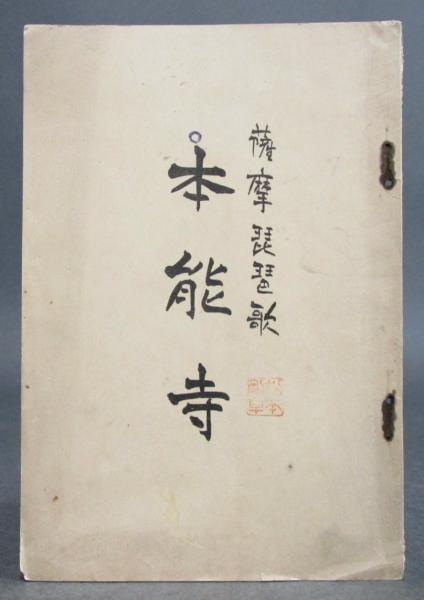 薩摩琵琶歌
本能寺